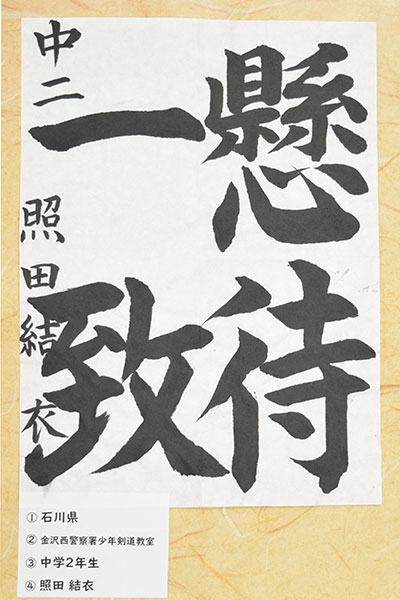 懸待
一致
中二 照田結衣
① 石川県
② 金沢西警察署少年剣道教室
③ 中学2年生
④ 照田 結衣